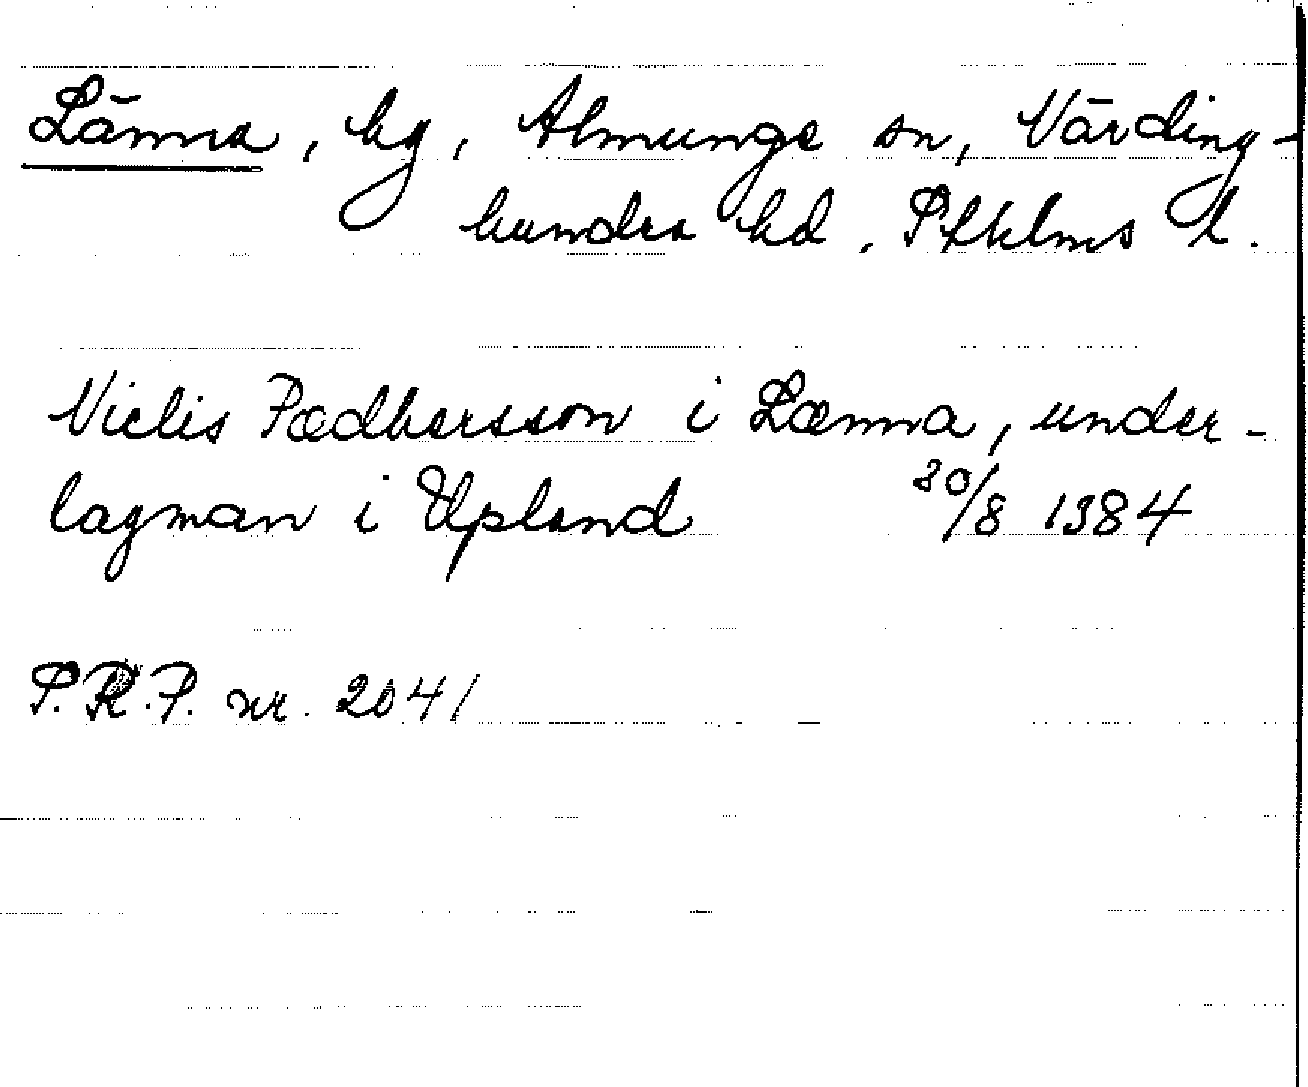 Länna, by, Almunge sn, Närding-
hundra hd, Sthlms l.
Niclis Pædhersson i Lænna, under-
lagman i Upland 30/8 1384
S.R.P. nr. 2041